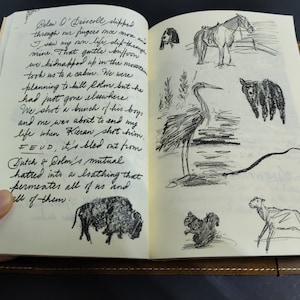 Colm O'Driscoll slipped
through our fingers once more and
I saw my own life slip through
mine. That gentle buffoon
we kidnapped up in the mountain
took us to a cabin. We were
planning to kill Colm but he
had just gone elsewhere
We shot a bunch of his boys
and one was about to end my
life when Kieran shot him.
FEUD, it's bled out from
Dutch & Colm's mutual
hatred into a loathing that
permeates all of us and
all of them.